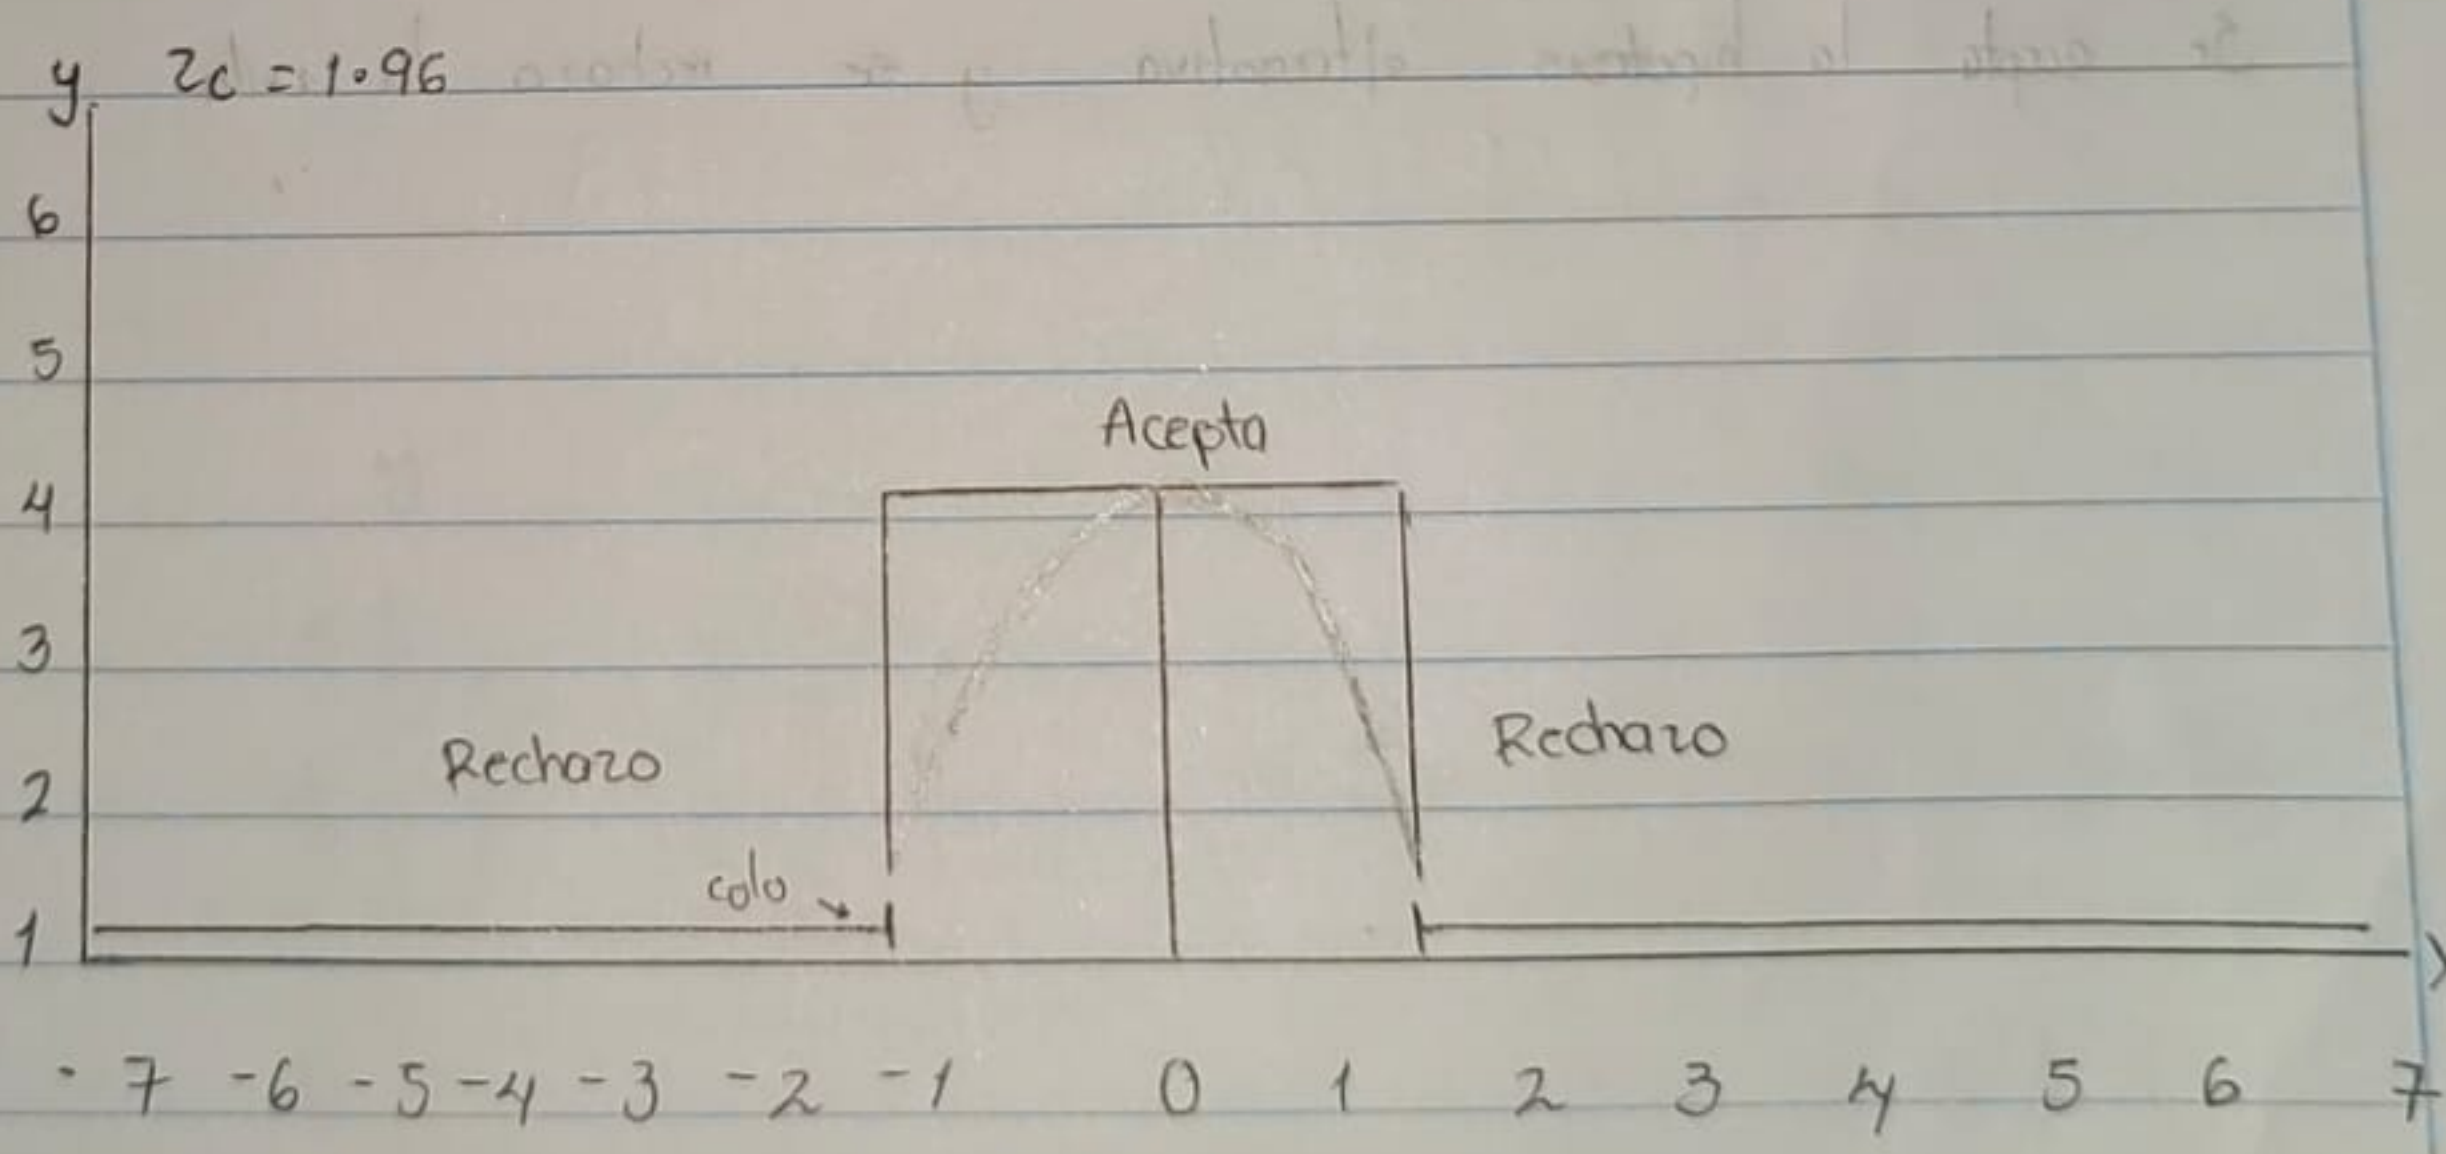 y Zc = 1.96
6
5
Acepta
4
3
Rechazo
Rechazo
2
cola
1
-7 -6 -5 -4 -3 -2 -1 0 1 2 3 4 5 6 7